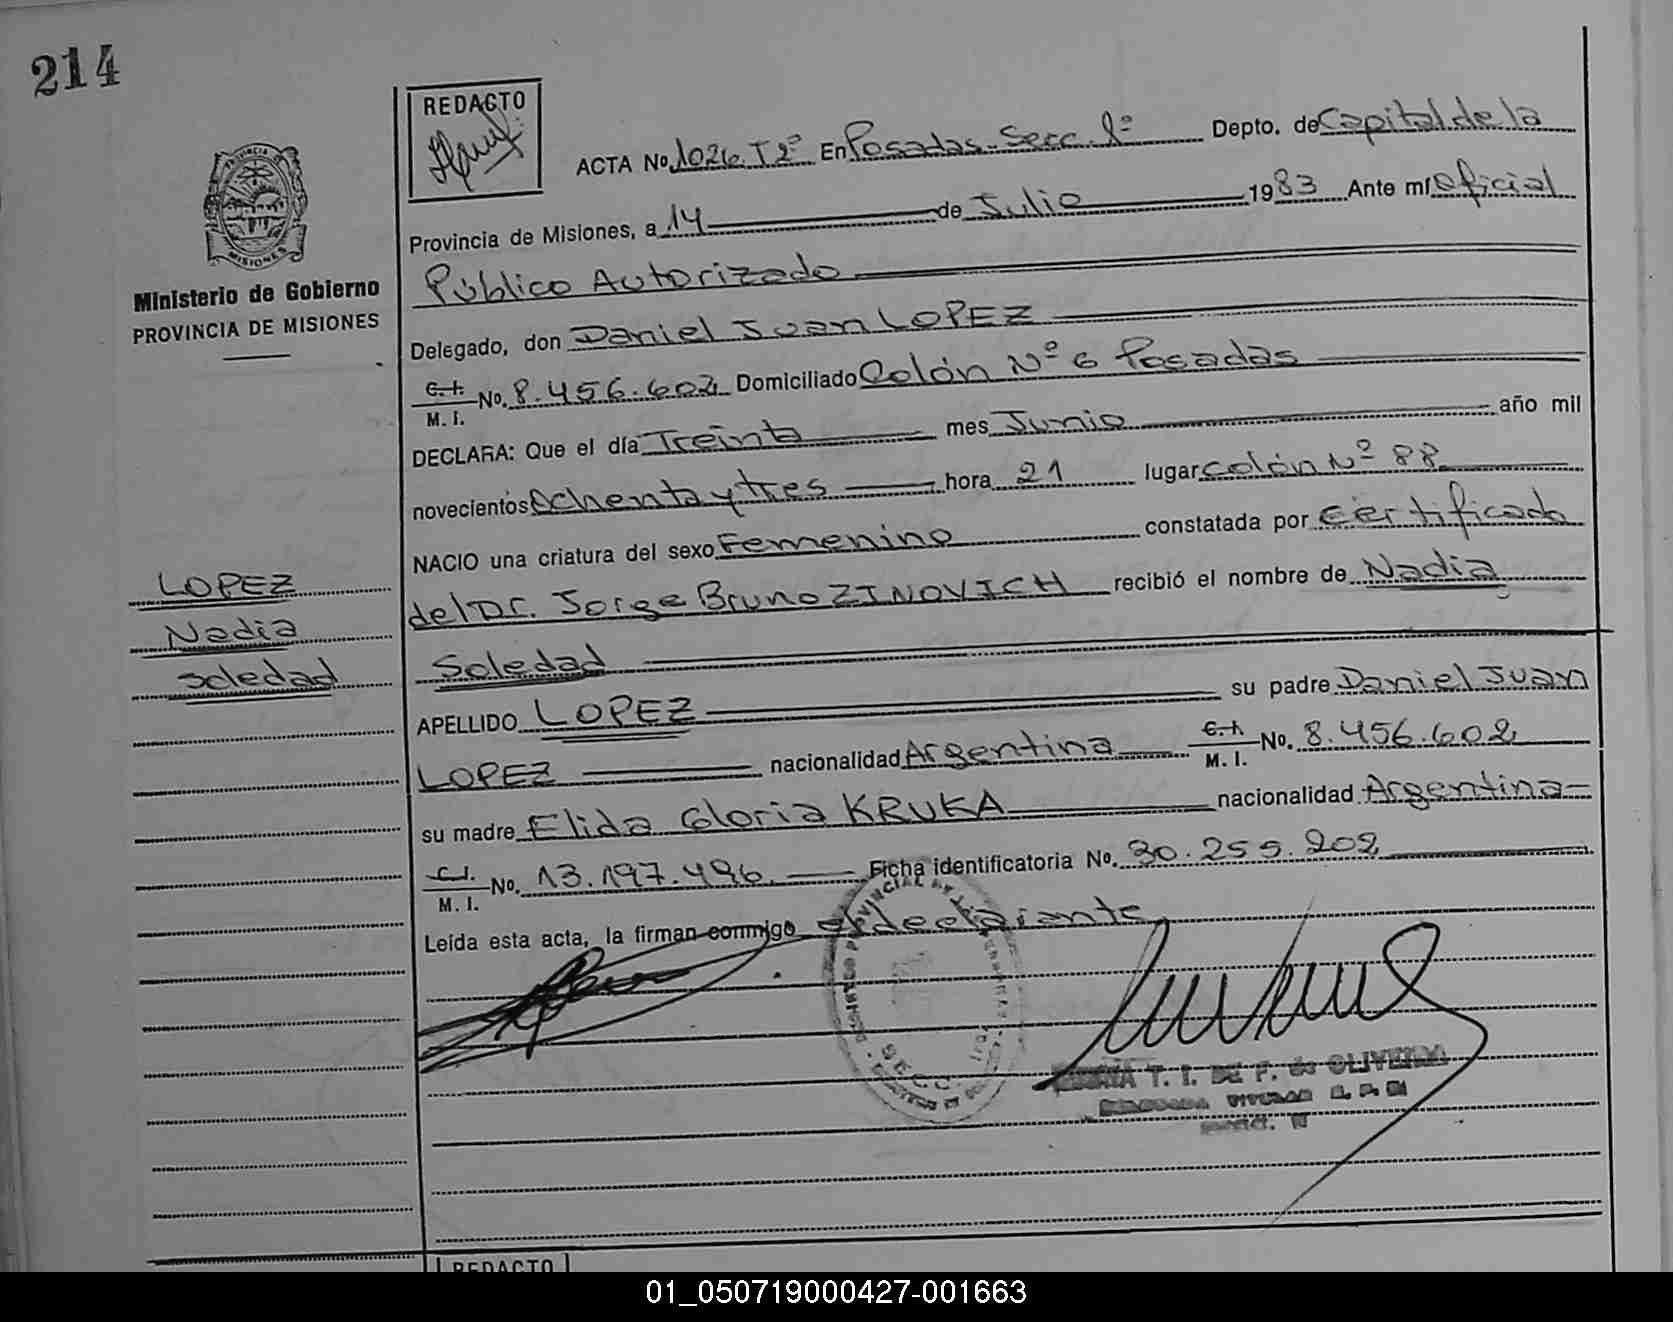 214
REDACTO
ACTA No. 1026 T2º En Posadas-Secc. 1ª Depto. de Capital de la
Provincia de Misiones, a 14 de Julio 1983 Ante mí Oficial
Público Autorizado
Delegado, don Daniel Juan LOPEZ
C. I.
M. I. No. 8.456.602 Domiciliado Colón Nº 6 Posadas
DECLARA: Que el día Treinta mes Junio año mil
novecientos Ochenta y tres hora 21 lugar Colón Nº 88
NACIO una criatura del sexo Femenino constatada por Certificado
del Dr. Jorge Bruno ZINOVICH recibió el nombre de Nadia
Soledad
APELLIDO LOPEZ su padre Daniel Juan
LOPEZ nacionalidad Argentina C. I. M. I. No. 8.456.602
su madre Elida Gloria KRUKA nacionalidad Argentina
C. I.
M. I. No. 13.197.496 Ficha identificatoria No. 30.255.202
Leída esta acta, la firman conmigo el declarante
T. I. DE F. de OLIVEIRA
SECC.
Ministerio de Gobierno
PROVINCIA DE MISIONES
LOPEZ
Nadia
Soledad
PROVINCIA DE
MISIONES
REDACTO
01_050719000427-001663